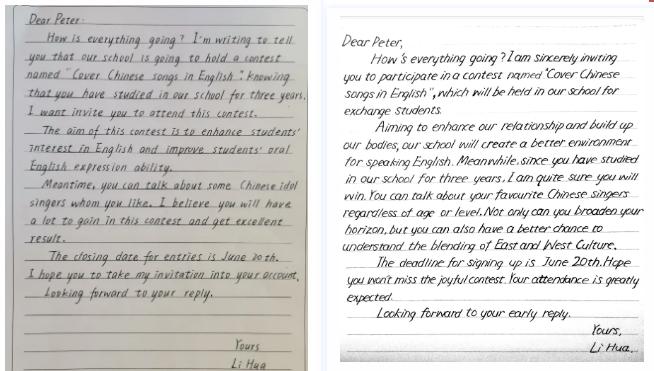 Dear Peter:
How is everything going? I'm writing to tell
you that our school is going to hold a contest
named "Cover Chinese songs in English". knowing
that you have studied in our school for three years,
I want invite you to attend this contest.
The aim of this contest is to enhance students'
interest in English and improve students' oral
English expression ability.
Meantime, you can talk about some Chinese idol
singers whom you like. I believe you will have
a lot to gain in this contest and get excellent
result.
The closing date for entries is June 20th.
I hope you to take my invitation into your account.
Looking forward to your reply.
Yours
Li Hua
Dear Peter,
How's everything going? I am sincerely inviting
you to participate in a contest named "Cover Chinese
songs in English", which will be held in our school for
exchange students.
Aiming to enhance our relationship and build up
our bodies, our school will create a better environment
for speaking English. Meanwhile, since you have studied
in our school for three years, I am quite sure you will
win. You can talk about your favourite Chinese singers
regardless of age or level. Not only can you broaden your
horizon, but you can also have a better chance to
understand the blending of East and West Culture.
The deadline for signing up is June 20th. Hope
you won't miss the joyful contest. Your attendance is greatly
expected.
Looking forward to your early reply.
Yours,
Li Hua.